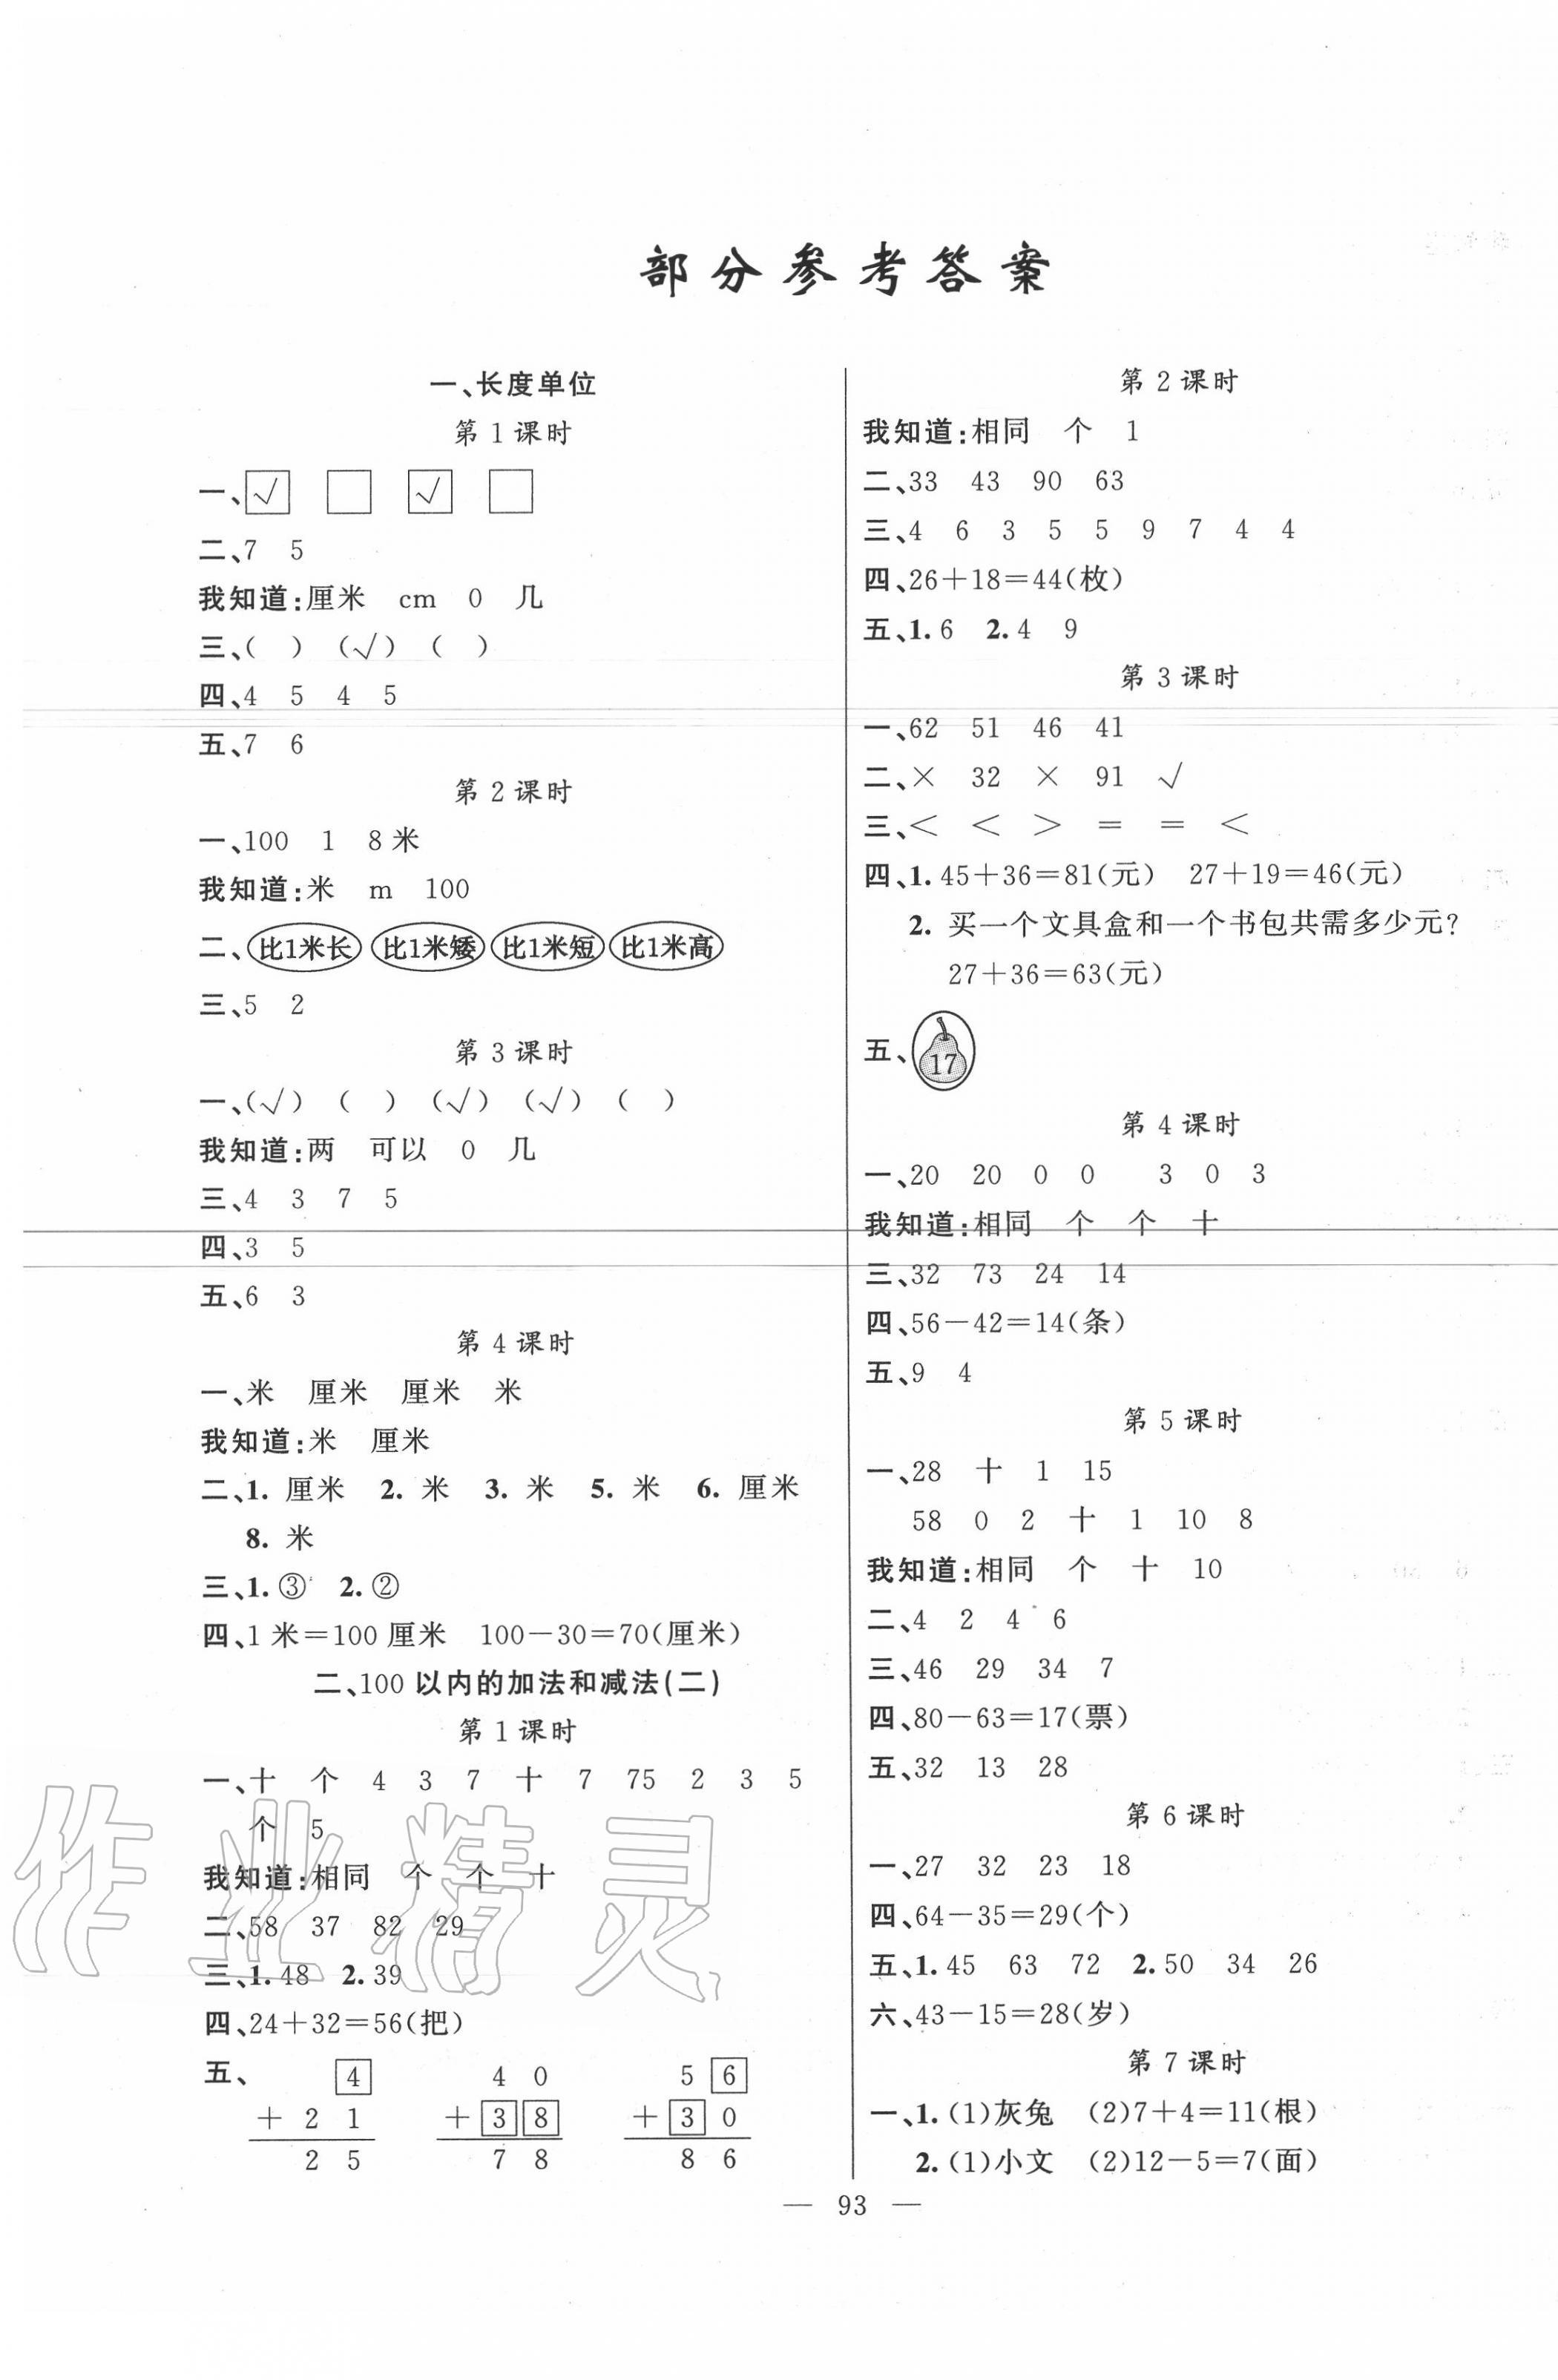 部分参考答案
一、长度单位
第 1 课时
一、√ □ √ □
二、7 5
我知道:厘米 cm 0 几
三、( ) (√) ( )
四、4 5 4 5
五、7 6
第 2 课时
一、100 1 8 米
我知道:米 m 100
二、比1米长 比1米矮 比1米短 比1米高
三、5 2
第 3 课时
一、(√) ( ) (√) (√) ( )
我知道:两 可以 0 几
三、4 3 7 5
四、3 5
五、6 3
第 4 课时
一、米 厘米 厘米 米
我知道:米 厘米
二、1. 厘米 2. 米 3. 米 5. 米 6. 厘米
8. 米
三、1. ③ 2. ②
四、1 米=100 厘米 100-30=70(厘米)
二、100 以内的加法和减法(二)
第 1 课时
一、十 个 4 3 7 十 7 75 2 3 5
个 5
我知道:相同 个 个 十
二、58 37 82 29
三、1. 48 2. 39
四、24+32=56(把)
五、 4 4 0 5 6
+ 2 1 + 3 8 + 3 0
2 5 7 8 8 6
第 2 课时
我知道:相同 个 1
二、33 43 90 63
三、4 6 3 5 5 9 7 4 4
四、26+18=44(枚)
五、1. 6 2. 4 9
第 3 课时
一、62 51 46 41
二、× 32 × 91 √
三、< < > = = <
四、1. 45+36=81(元) 27+19=46(元)
2. 买一个文具盒和一个书包共需多少元?
27+36=63(元)
五、17
第 4 课时
一、20 20 0 0 3 0 3
我知道:相同 个 个 十
三、32 73 24 14
四、56-42=14(条)
五、9 4
第 5 课时
一、28 十 1 15
58 0 2 十 1 10 8
我知道:相同 个 十 10
二、4 2 4 6
三、46 29 34 7
四、80-63=17(票)
五、32 13 28
第 6 课时
一、27 32 23 18
四、64-35=29(个)
五、1. 45 63 72 2. 50 34 26
六、43-15=28(岁)
第 7 课时
一、1. (1)灰兔 (2)7+4=11(根)
2. (1)小文 (2)12-5=7(面)
— 93 —
作业精灵